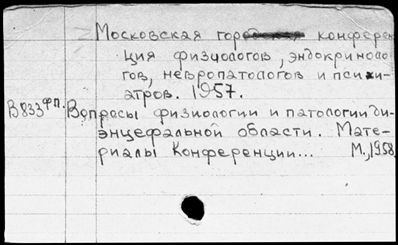 Московская городская конферен
ция физиологов, эндокриноло
гов, невропатологов и психи-
атров. 1957.
В833фп. Вопросы физиологии и патологии ди-
энцефальной области. Мате-
риалы Конференции... М., 1958